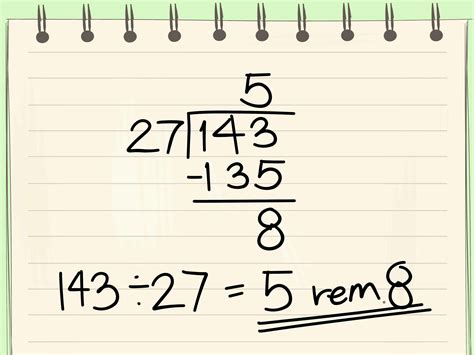 5
27|143
-135
8
143÷27 = 5 rem.8